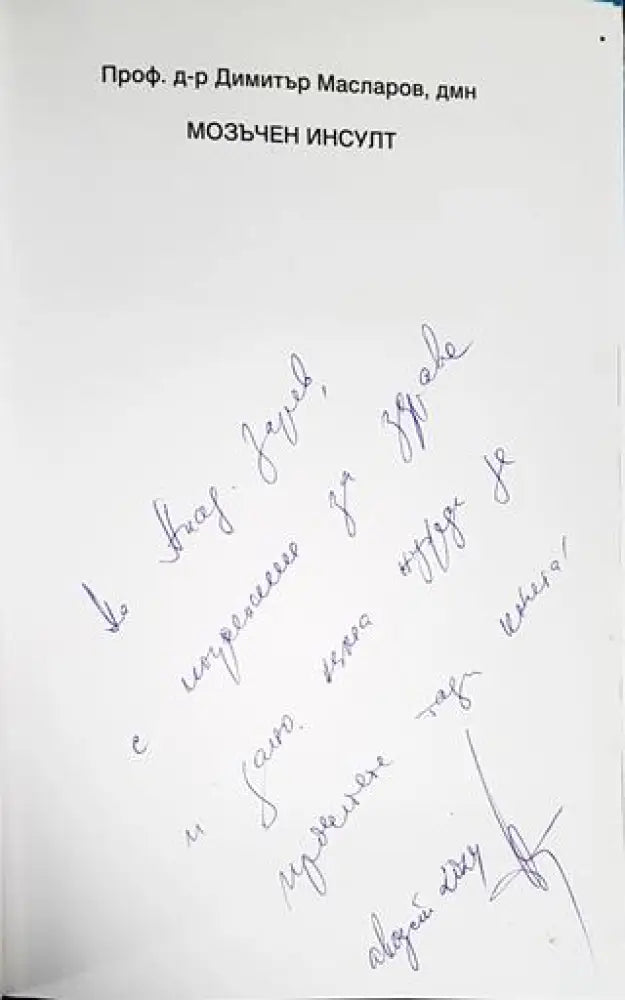 Проф. д-р Димитър Масларов, дмн
МОЗЪЧЕН ИНСУЛТ
На Акад.
с за здраве
и дано нужда да
прочетете тази книга!
август 2024